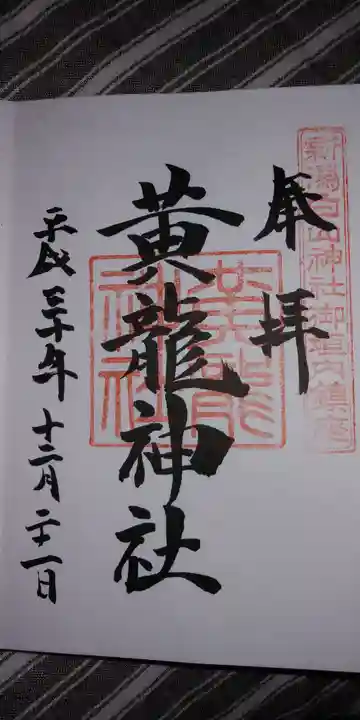 新潟白山神社御境内鎮座
奉拝
黄龍神社
黄龍神社
平成三十年十二月二十一日